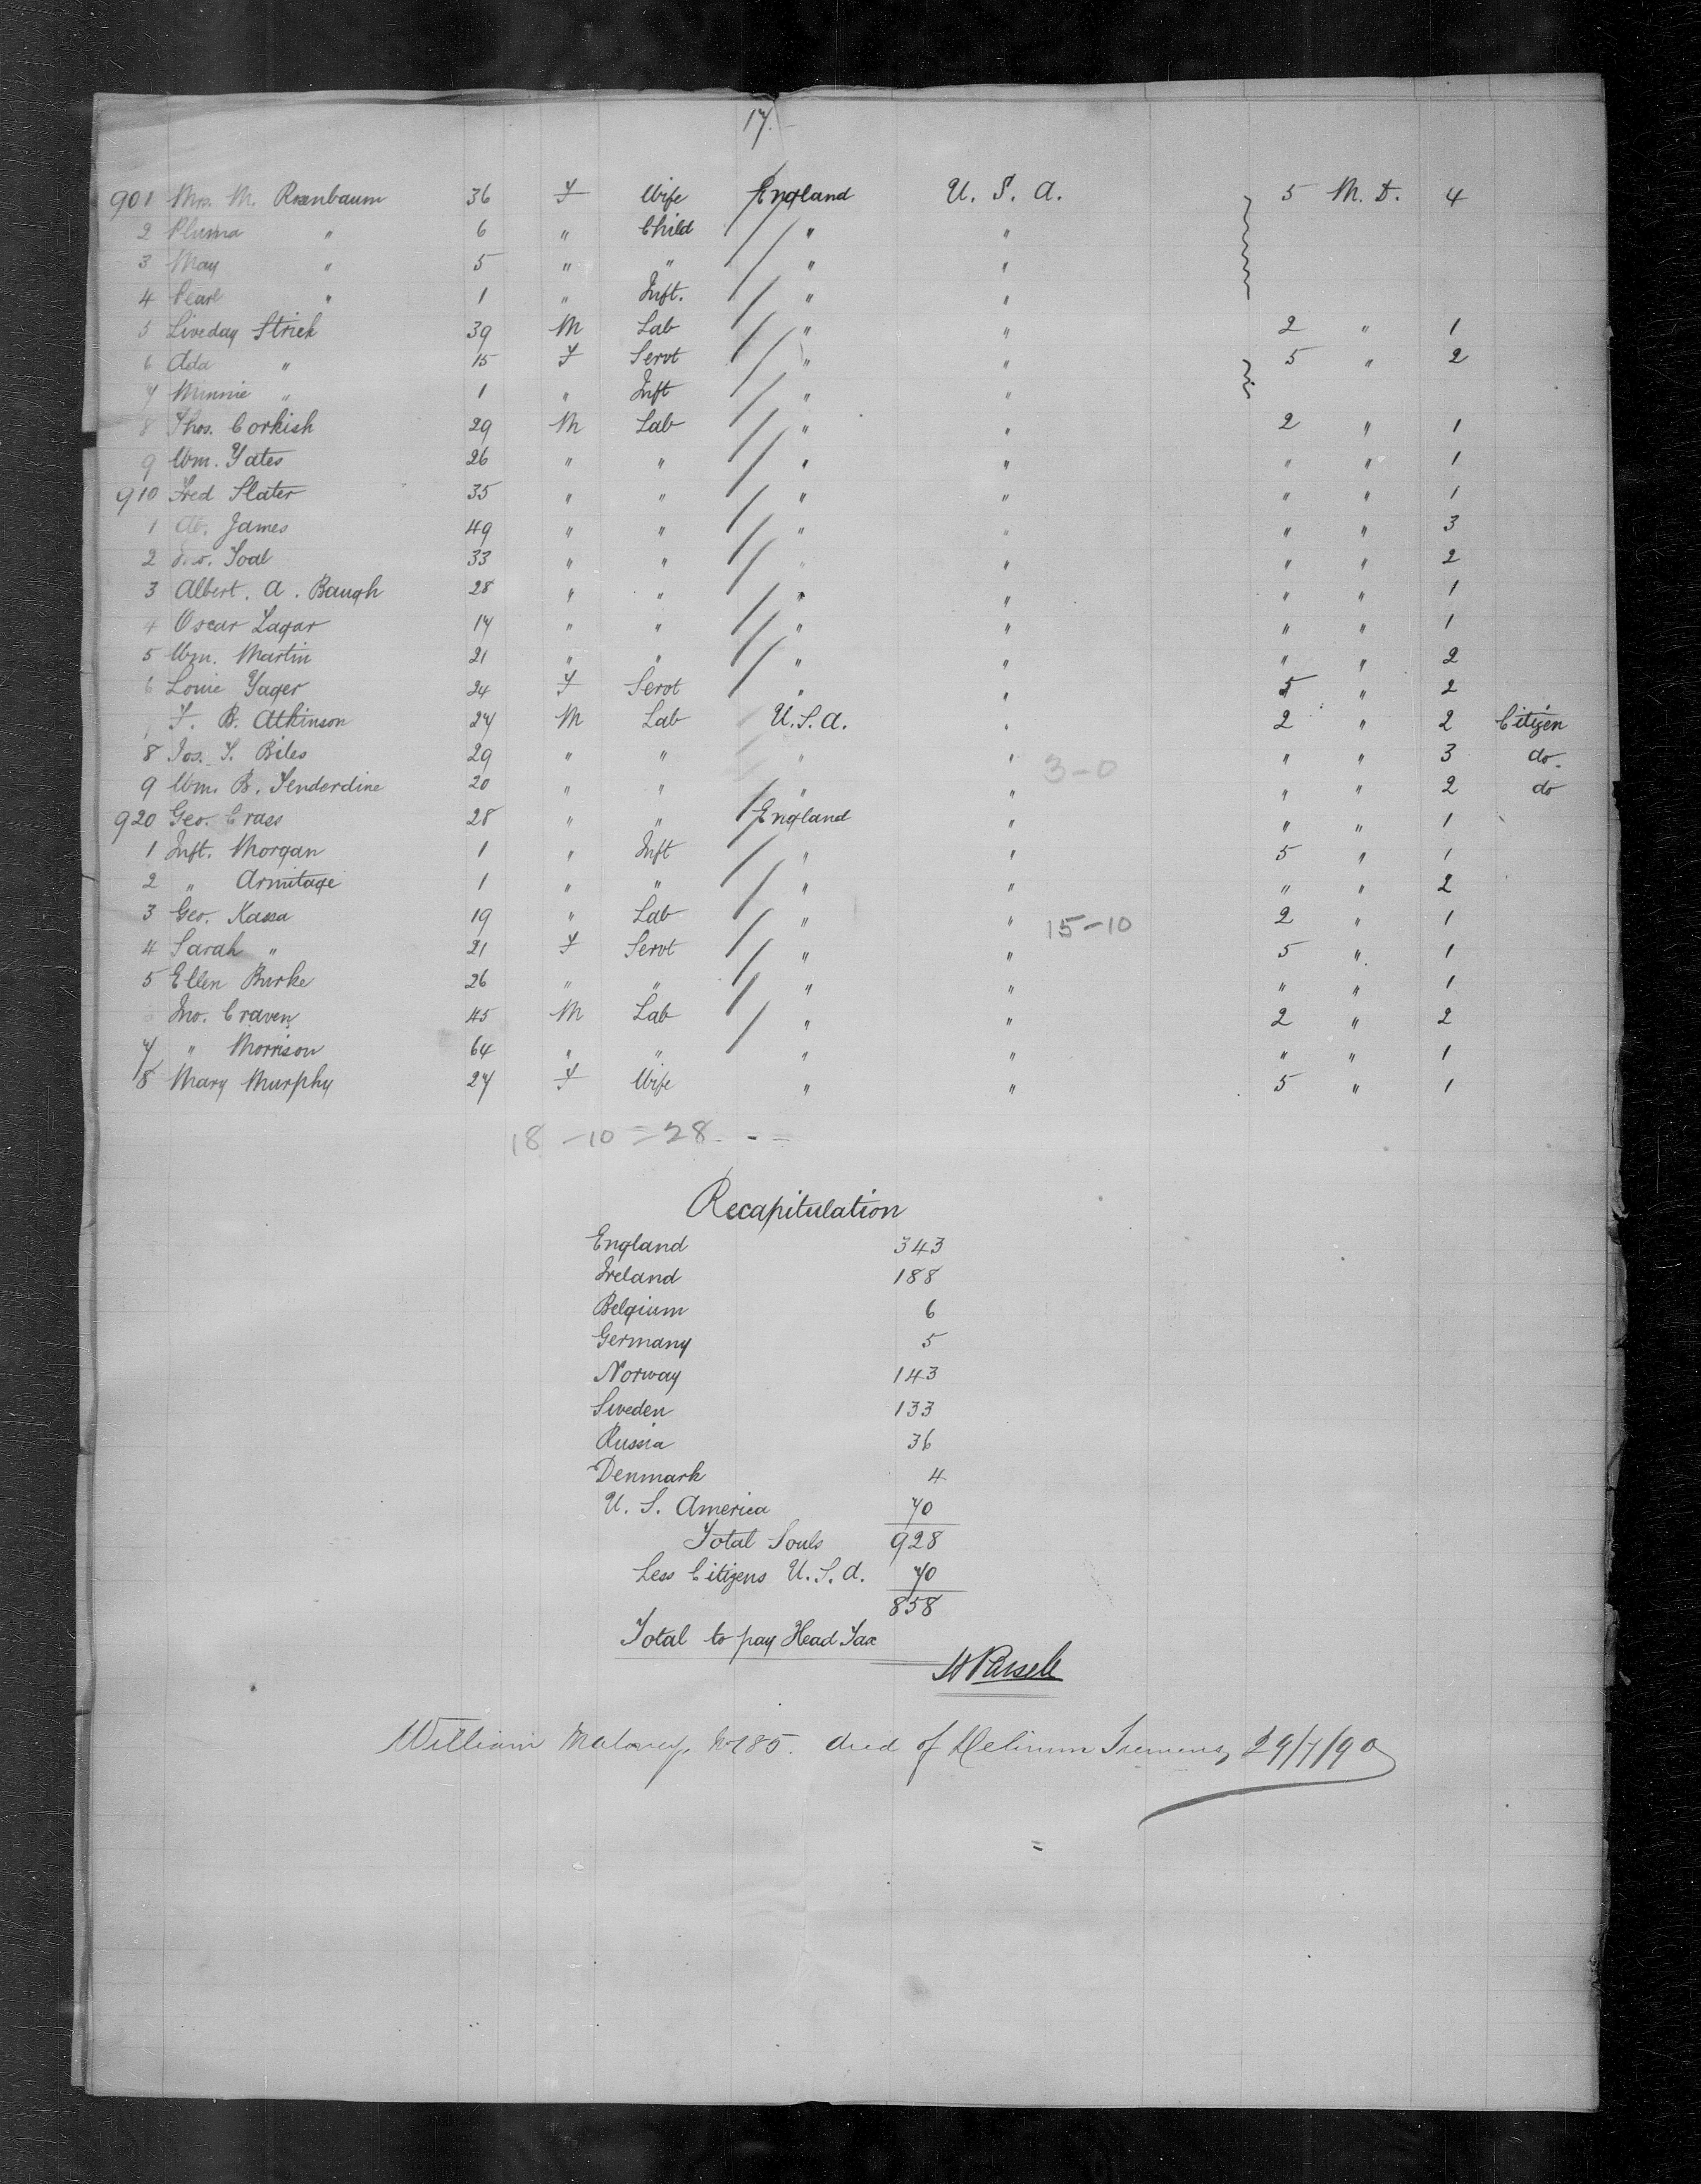 17.
901 Mrs. M. Rosenbaum 36 F Wife England U. S. A. 5 M. D. 4
2 Pluma " 6 " Child " "
3 May " 5 " " " "
4 Pearl " 1 " Inft. " "
5 Liveday Strick 39 M Lab " " 2 " 1
6 Ada " 15 F Servt " " 5 " 2
7 Minnie " 1 " Inft " "
8 Thos. Corkish 29 M Lab " " 2 " 1
9 Wm. Yates 26 " " " " " " 1
910 Fred Slater 35 " " " " " " 1
1 James 49 " " " " " " 3
2 Toal 33 " " " " " " 2
3 Albert. A. Baugh 28 " " " " " " 1
4 Oscar Lagar 17 " " " " " " 1
5 Wm. Martin 21 " " " " " " 2
6 Louie Yager 24 F Servt " " 5 " 2
F. B. Atkinson 27 M Lab U.S.A. " 2 " 2 Citizen
8 Jos. T. Biles 29 " " " " 3-0 " " 3 do.
9 Wm. B. Fenderdine 20 " " " " " " 2 do
920 Geo. Crass 28 " " England " " " 1
1 Inft. Morgan 1 " Inft " " 5 " 1
2 " Armitage 1 " " " " " " 2
3 Geo. Kassa 19 " Lab " " 15-10 2 " 1
4 Sarah " 21 F Servt " " 5 " 1
5 Ellen Burke 26 " " " " " " 1
Jno. Craven 45 M Lab " " 2 " 2
7 " Morrison 64 " " " " " " 1
8 Mary Murphy 27 F Wife " " 5 " 1
18-10=28
Recapitulation
England 343
Ireland 188
Belgium 6
Germany 5
Norway 143
Sweden 133
Russia 36
Denmark 4
U. S. America 70
Total Souls 928
Less Citizens U.S.A. 70
858
Total to pay Head Tax
William No 185. died of Delirium Tremens, 29/7/90